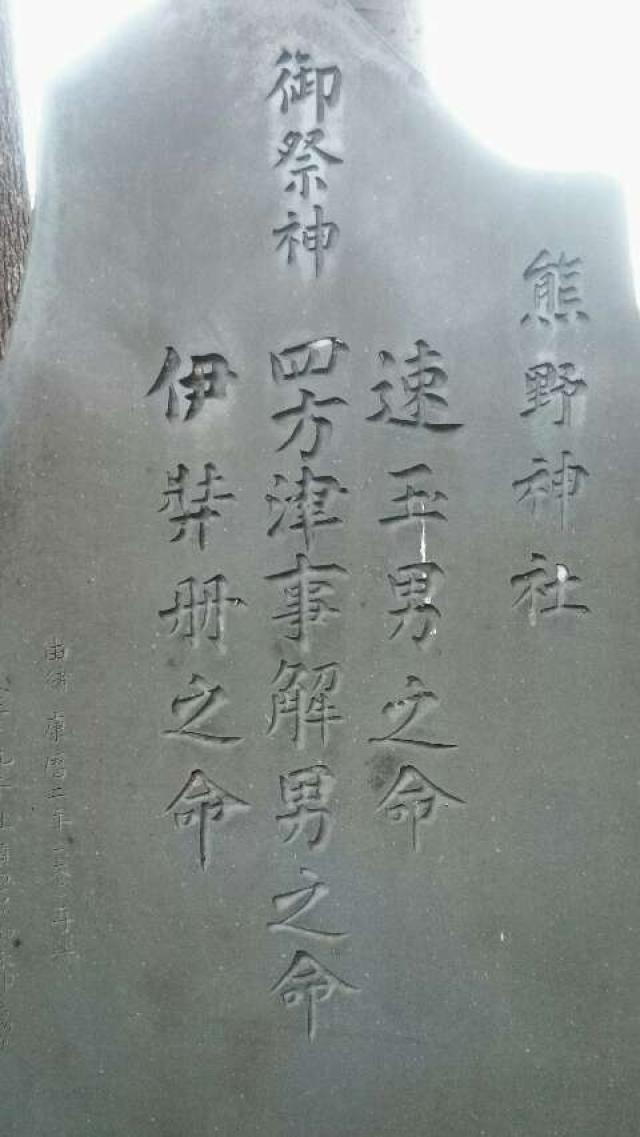 熊野神社
御祭神
速玉男之命
四方津事解男之命
伊弉册之命
由緒 康暦二年